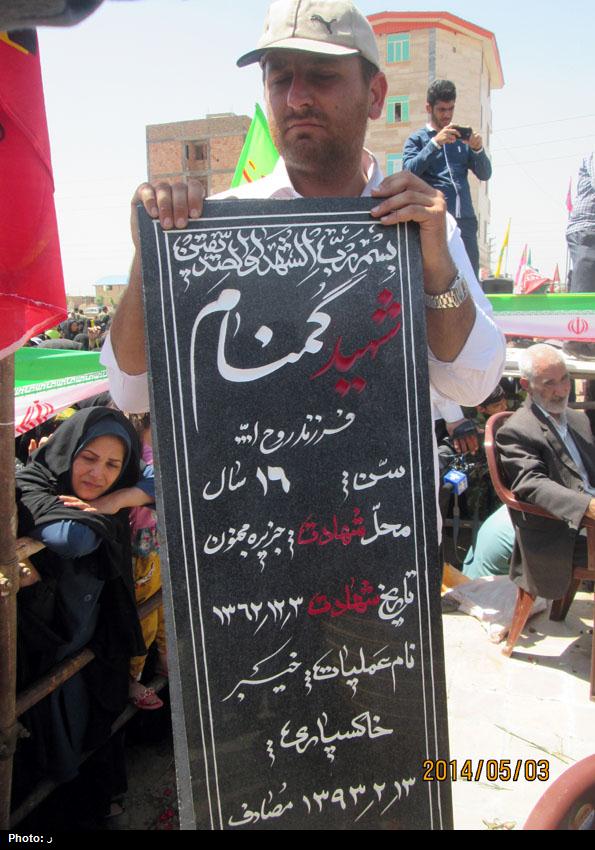 بسم رب الشهداء و الصدیقین
شهید گمنام
فرزند روح الله
سن: ۱۶ سال
محل شهادت: جزیره مجنون
تاریخ شهادت ۱۳۶۲٫۱۲٫۳
نام عملیات: خیبر
خاکسپاری:
۱۳۹۳٫۲٫۱۳ مصادف
2014/05/03
Photo: ر